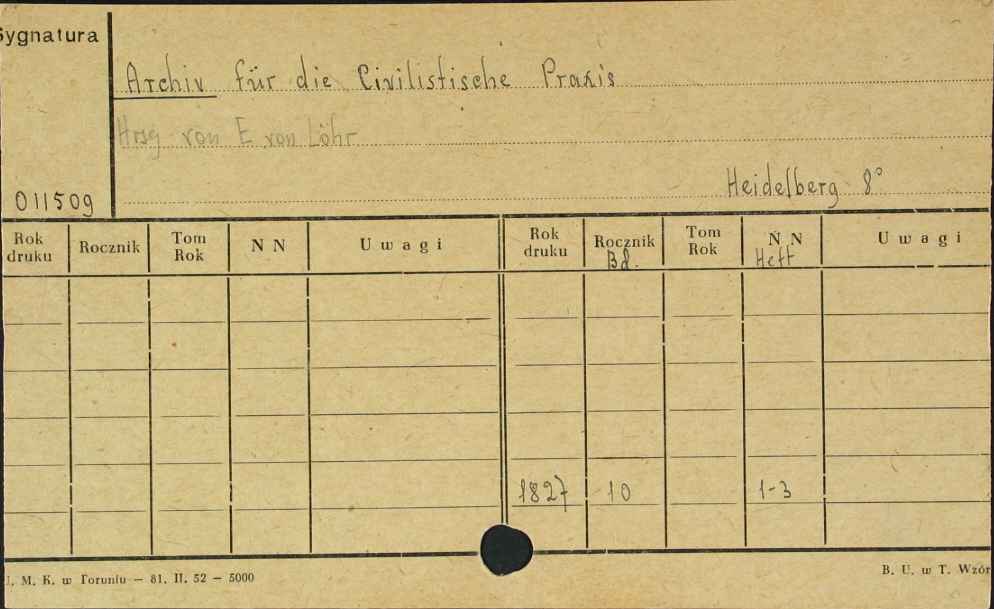 Sygnatura
Archiv für die Civilistische Praxis
Hrsg von E von Löhr
011509
Heidelberg 8°
Rok druku Rocznik Tom Rok N N Uwagi Rok druku Rocznik Bd. Tom Rok N N Heft Uwagi
1827 10 1-3
U. M. K. w Toruniu — 81. II. 52 — 5000
B. U. w T. Wzór